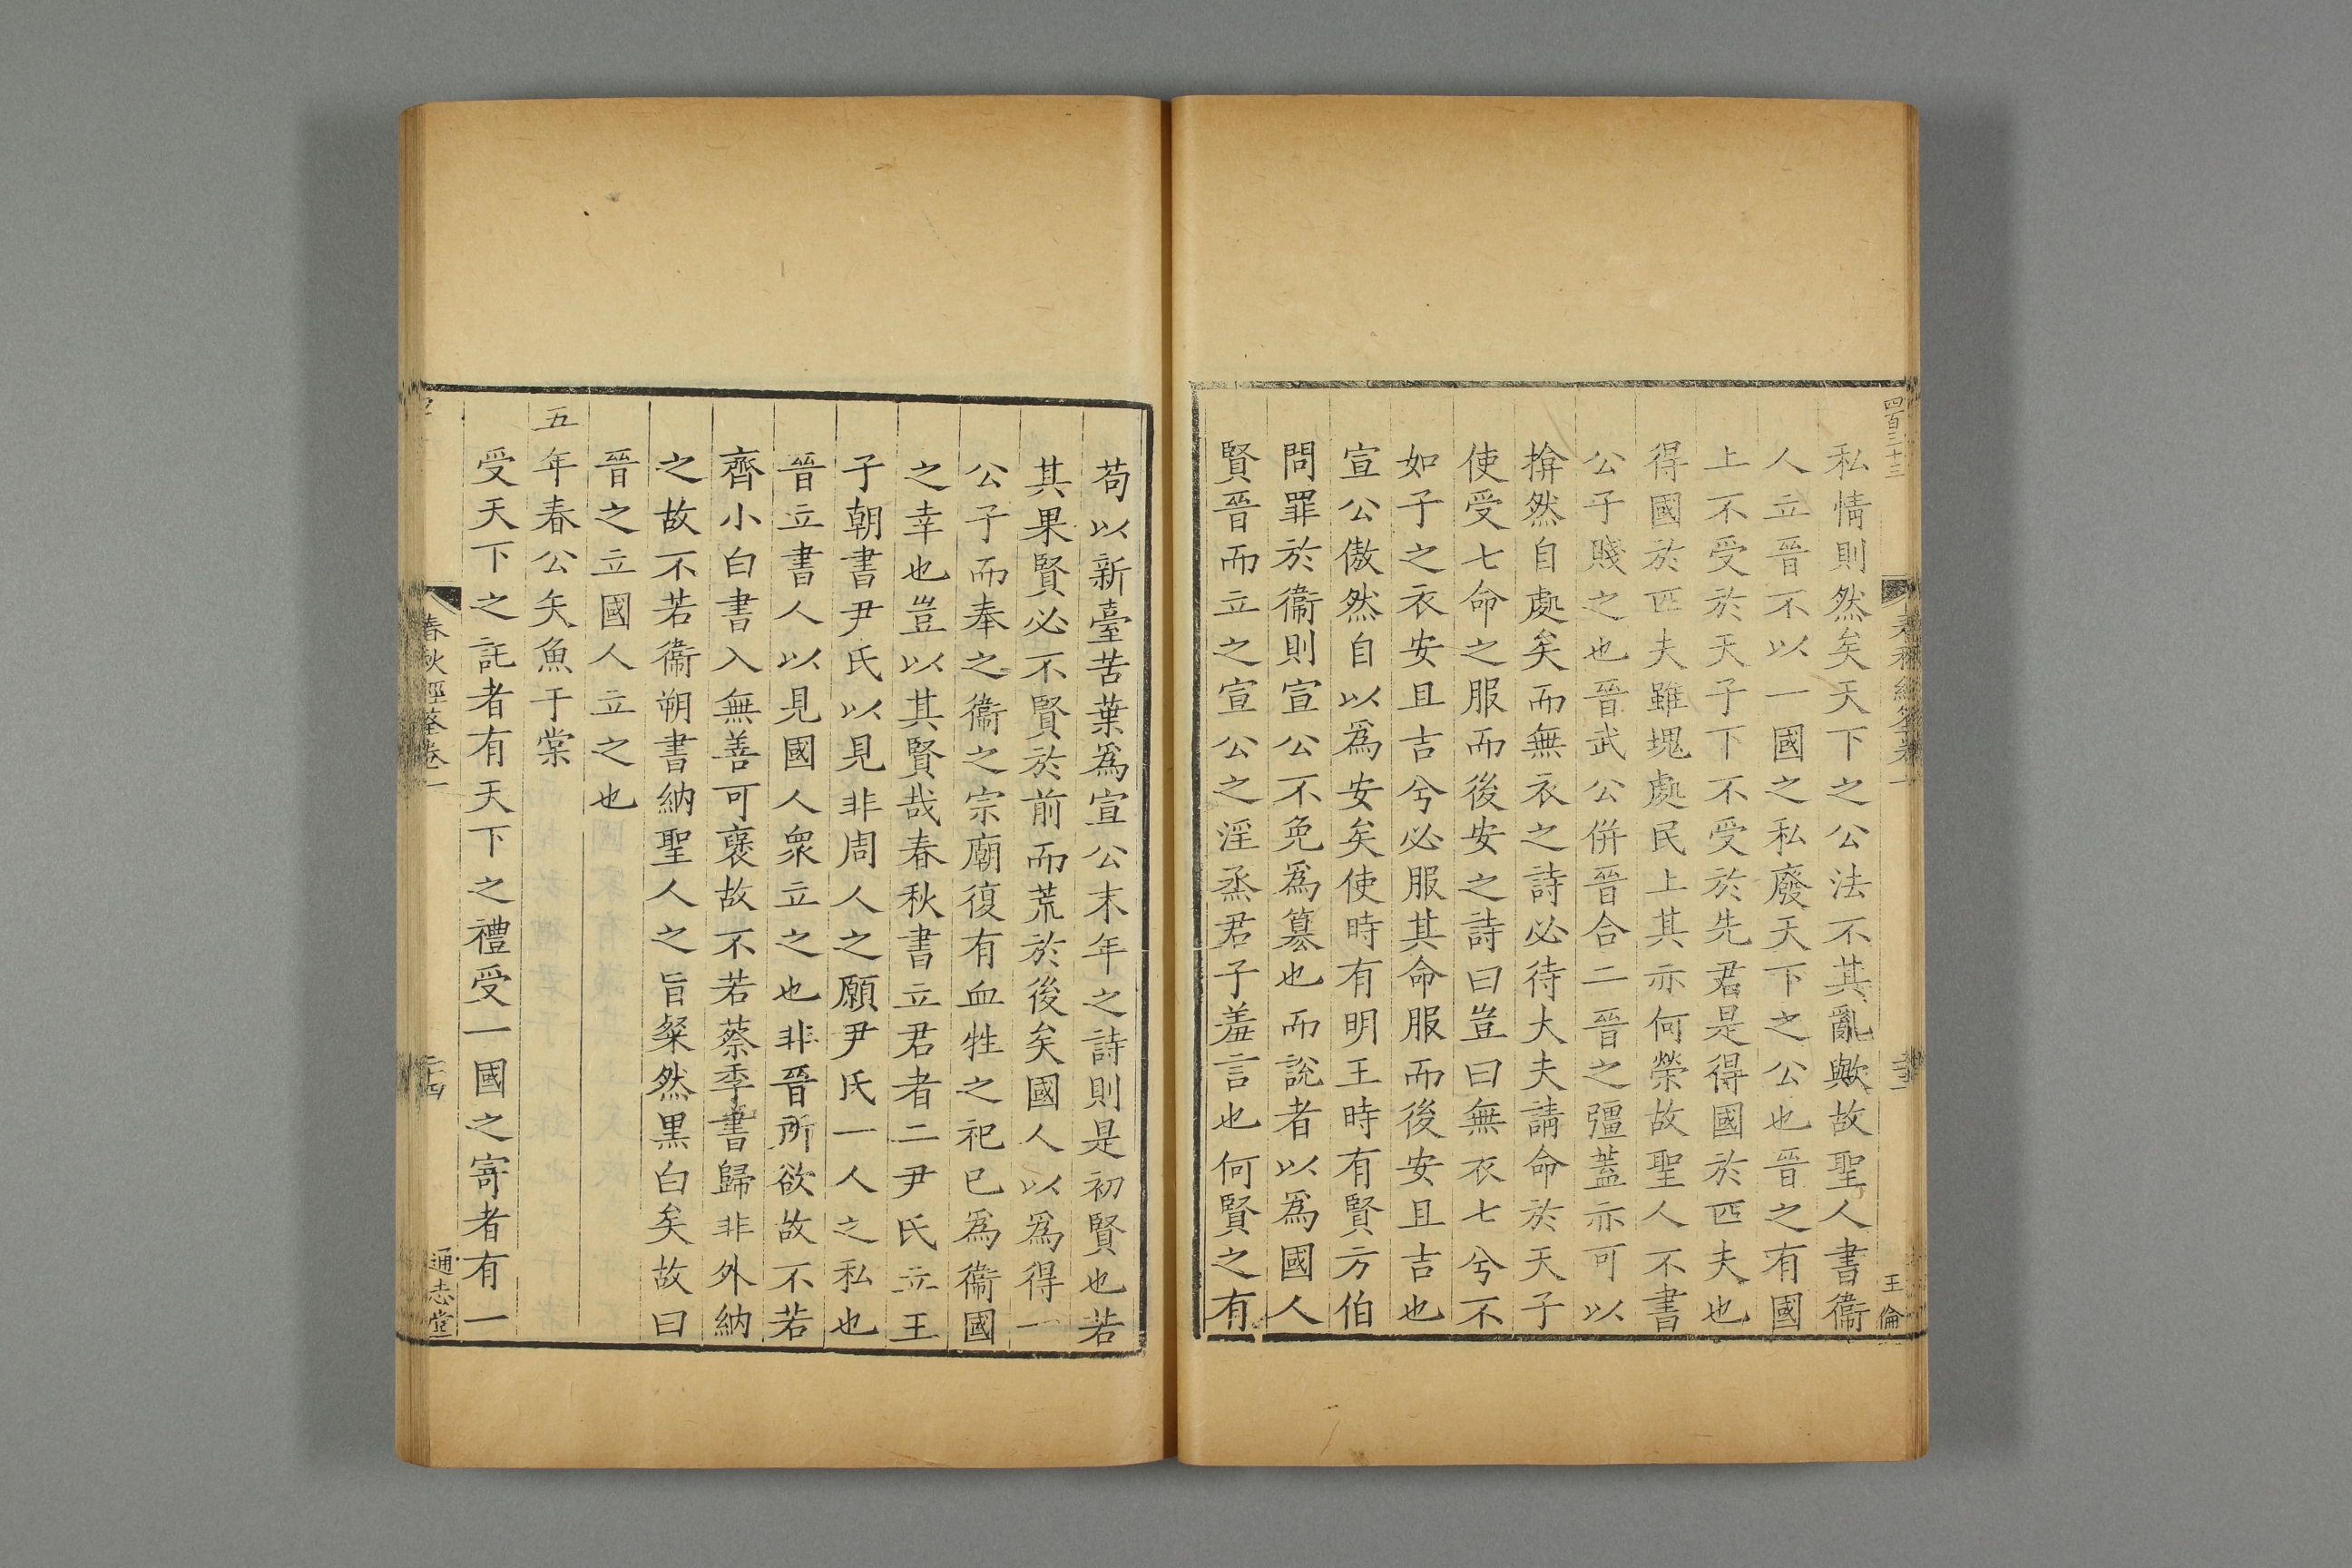 四百三十三
私情則然矣天下之公法不其亂歟故聖人書衞
人立晉不以一國之私廢天下之公也晉之有國
上不受於天子下不受於先君是得國於匹夫也
得國於匹夫雖塊處民上其亦何榮故聖人不書
公子賤之也晉武公併晉合二晉之彊蓋亦可以
揜然自處矣而無衣之詩必待大夫請命於天子
使受七命之服而後安之詩曰豈曰無衣七兮不
如子之衣安且吉兮必服其命服而後安且吉也
宣公傲然自以爲安矣使時有明王時有賢方伯
問罪於衞則宣公不免爲簒也而說者以爲國人
賢晉而立之宣公之淫烝君子羞言也何賢之有
王倫
苟以新臺苦葉爲宣公末年之詩則是初賢也若
其果賢必不賢於前而荒於後矣國人以爲得一
公子而奉之衞之宗廟復有血牲之祀已爲衞國
之幸也豈以其賢哉春秋書立君者二尹氏立王
子朝書尹氏以見非周人之願尹氏一人之私也
晉立書人以見國人衆立之也非晉所欲故不若
齊小白書入無善可褒故不若蔡季書歸非外納
之故不若衞朔書納聖人之旨粲然黑白矣故曰
晉之立國人立之也
五年春公矢魚于棠
受天下之託者有天下之禮受一國之寄者有一
春秋經筌卷一
二十四
通志堂